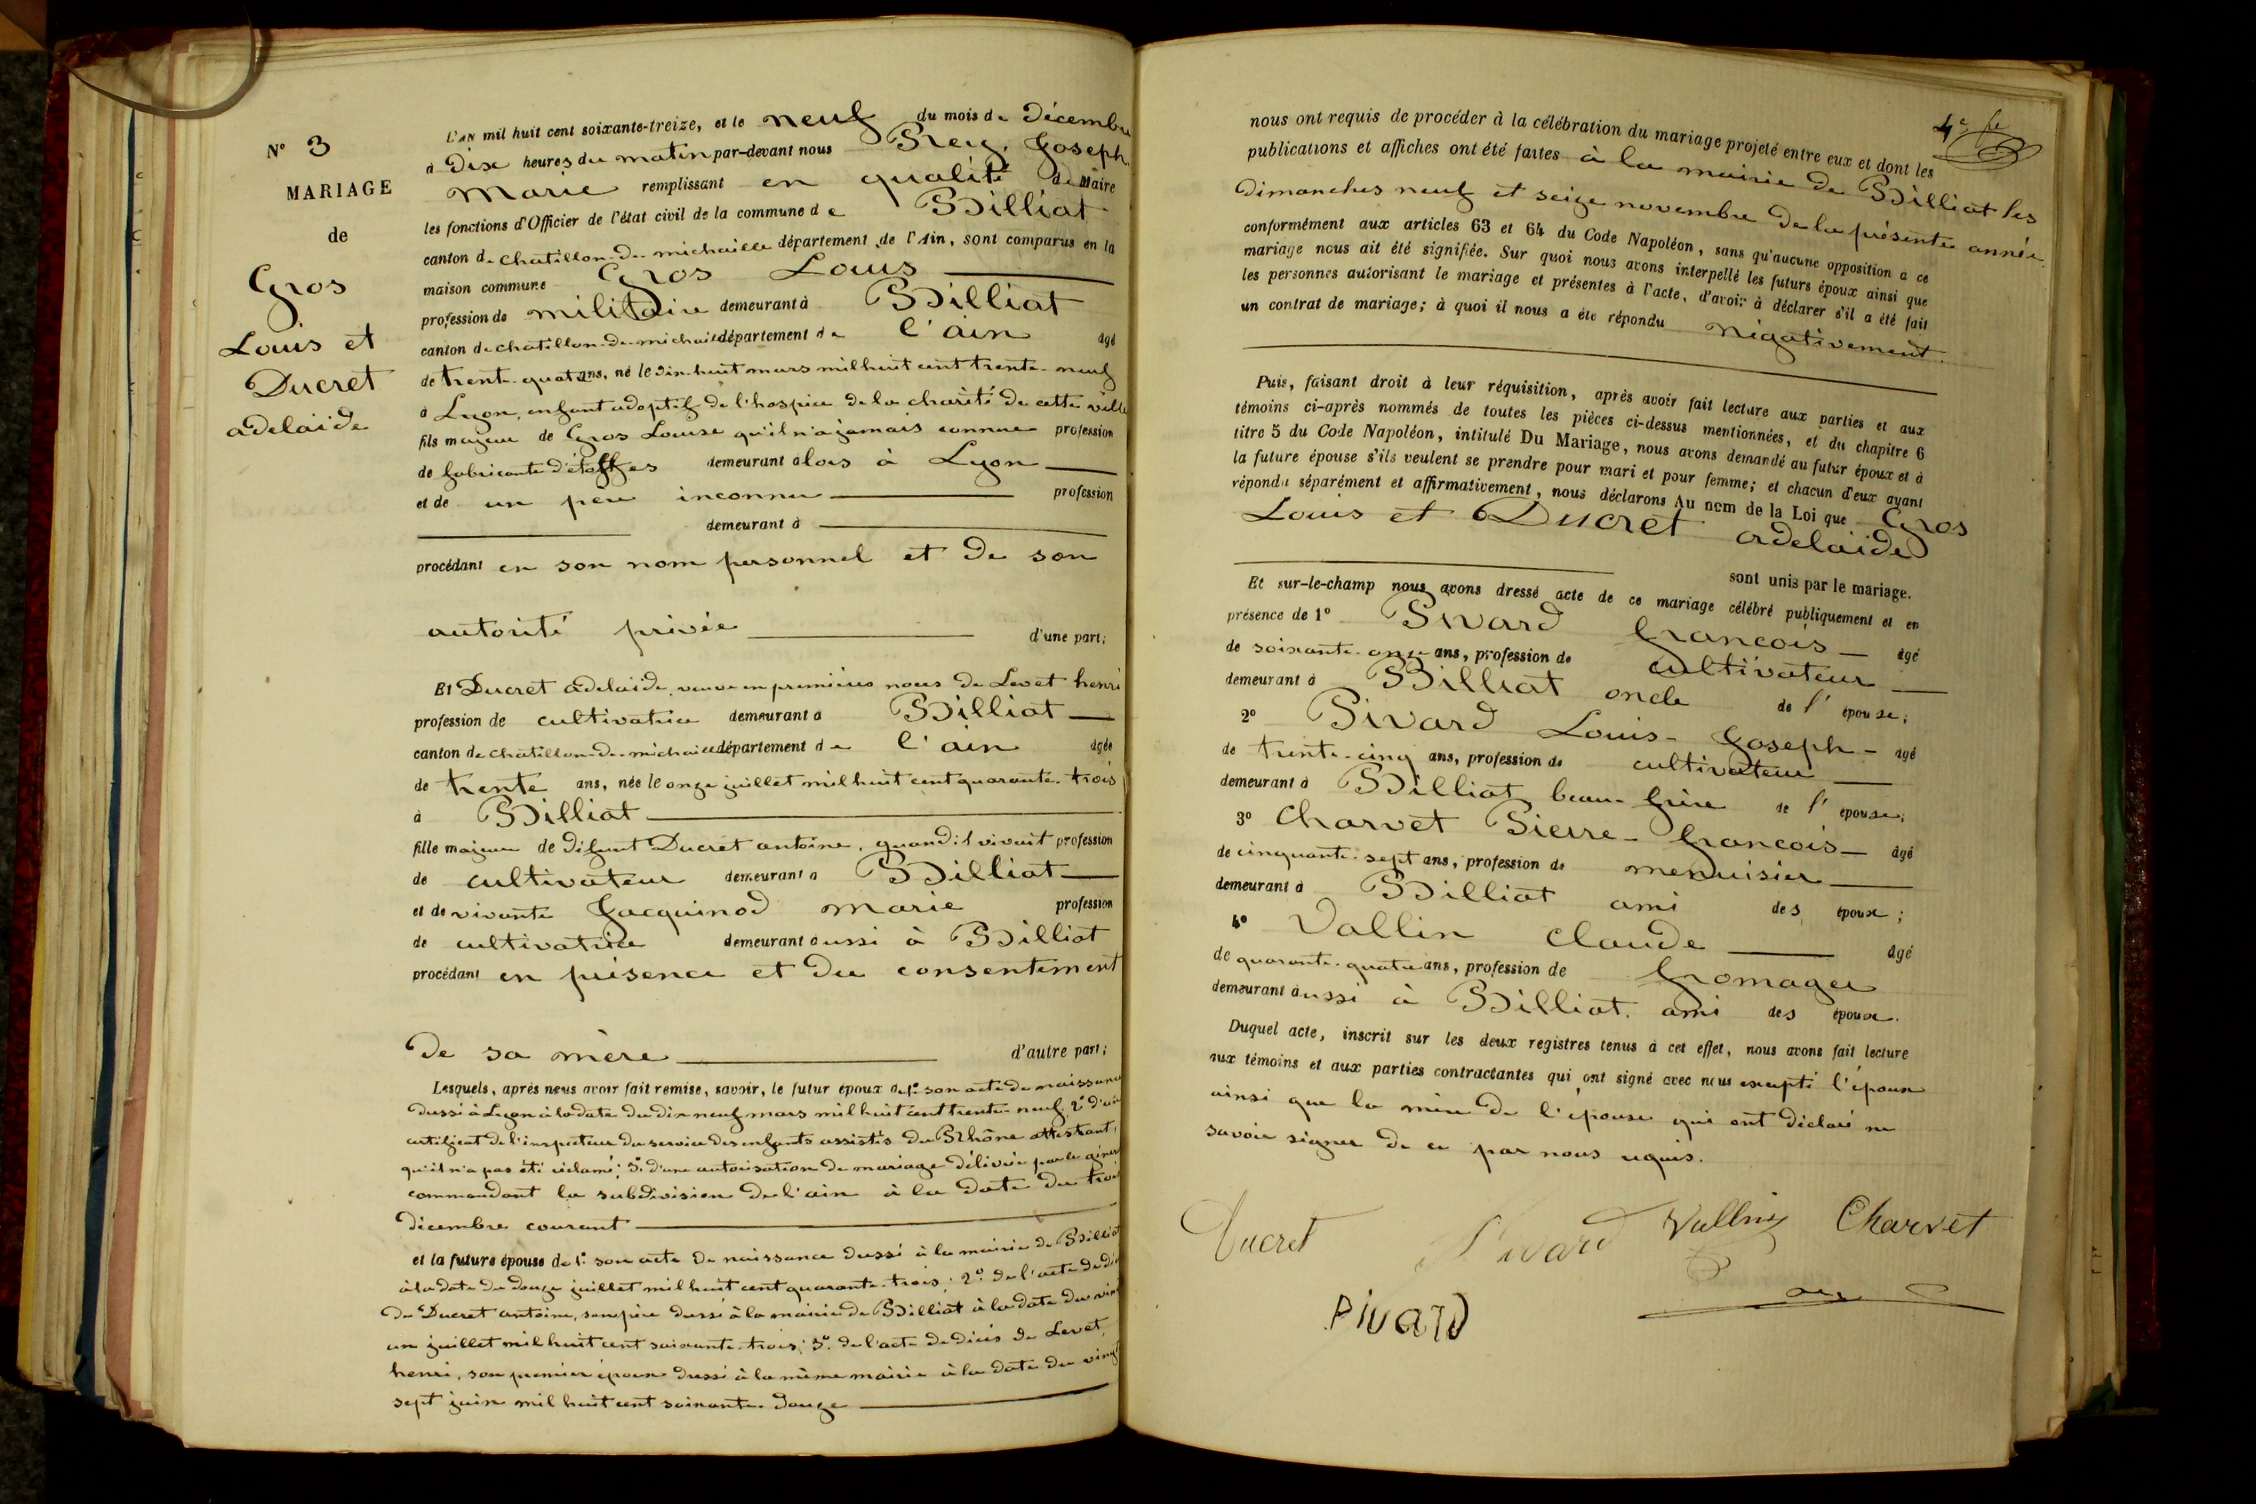 N° 3
MARIAGE
de
Gros
Louis et
Ducret
adelaide
L'AN mil huit cent soixante-treize, et le neuf du mois de Décembre
à Dix heures du matin par-devant nous Rey, Joseph
Marie remplissant en qualité de Maire
les fonctions d'Officier de l'état civil de la commune de Billiat
canton de Chatillon-de-michaille département de l'Ain, sont comparus en la
maison commune Gros Louis
profession de militaire demeurant à Billiat
canton de chatillon-de-michaille département de l'ain âgé
de trente-quatre ans, né le dix-huit mars mil huit cent trente-neuf
à Lyon, enfant adoptif de l'hospice de la charité de cette ville
fils majeur de Gros Louise qu'il n'a jamais connue profession
de fabricante d'étoffes demeurant alors à Lyon
et de un père inconnu profession
demeurant à
procédant en son nom personnel et de son
autorité privée d'une part;
Et Ducret adelaide, veuve en premières noces de Levet henri
profession de cultivatrice demeurant à Billiat
canton de chatillon-de-michaille département de l'ain âgée
de trente ans, née le onze juillet mil huit cent quarante-trois
à Billiat
fille majeure de défunt Ducret antoine, quand il vivait profession
de cultivateur demeurant à Billiat
et de vivante Jacquinod marie profession
de cultivatrice demeurant aussi à Billiat
procédant en présence et du consentement
de sa mère d'autre part;
Lesquels, après nous avoir fait remise, savoir, le futur époux de 1° son acte de naissance
dressé à Lyon à la date du dix-neuf mars mil huit cent trente-neuf, 2° d'un
certificat de l'inspecteur du service des enfants assistés du Rhône attestant
qu'il n'a pas été réclamé; 3° d'une autorisation de mariage délivrée par le général
commandant la subdivision de l'ain à la date du trois
décembre courant
et la future épouse de 1° son acte de naissance dressé à la mairie de Billiat
à la date du douze juillet mil huit cent quarante-trois; 2° de l'acte de décès
de Ducret antoine, son père dressé à la mairie de Billiat à la date du vingt
un juillet mil huit cent soixante-trois; 3° de l'acte de décès de Levet,
henri, son premier époux dressé à la même mairie à la date du vingt
sept juin mil huit cent soixante-douze
nous ont requis de procéder à la célébration du mariage projeté entre eux et dont les
publications et affiches ont été faites à la mairie de Billiat les
dimanches neuf et seize novembre de la présente année
conformément aux articles 63 et 64 du Code Napoléon, sans qu'aucune opposition à ce
mariage nous ait été signifiée. Sur quoi nous avons interpellé les futurs époux ainsi que
les personnes autorisant le mariage et présentes à l'acte, d'avoir à déclarer s'il a été fait
un contrat de mariage; à quoi il nous a été répondu négativement.
Puis, faisant droit à leur réquisition, après avoir fait lecture aux parties et aux
témoins ci-après nommés de toutes les pièces ci-dessus mentionnées, et du chapitre 6
titre 5 du Code Napoléon, intitulé Du Mariage, nous avons demandé au futur époux et à
la future épouse s'ils veulent se prendre pour mari et pour femme; et chacun d'eux ayant
répondu séparément et affirmativement, nous déclarons Au nom de la Loi que Gros
Louis et Ducret adelaide
sont unis par le mariage.
Et sur-le-champ nous avons dressé acte de ce mariage célébré publiquement et en
présence de 1° Pivard françois âgé
de soixante-onze ans, profession de cultivateur
demeurant à Billiat oncle de l'épouse;
2° Pivard Louis-Joseph âgé
de trente-cinq ans, profession de cultivateur
demeurant à Billiat beau-frère de l'épouse;
3° Charvet Pierre-françois âgé
de cinquante-sept ans, profession de menuisier
demeurant à Billiat ami des époux;
4° Vallin claude âgé
de quarante-quatre ans, profession de fromager
demeurant aussi à Billiat. ami des époux.
Duquel acte, inscrit sur les deux registres tenus à cet effet, nous avons fait lecture
aux témoins et aux parties contractantes qui ont signé avec nous excepté l'époux
ainsi que la mère de l'épouse qui ont déclaré ne
savoir signer de ce par nous requis.
Ducret Pivard Vallin Charvet
Pivard Rey